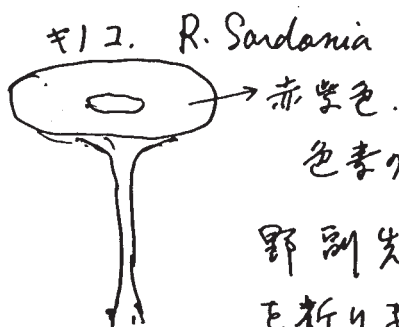 キノコ. R. Sardonia
赤紫色.
色素の
野副先
を祈りま